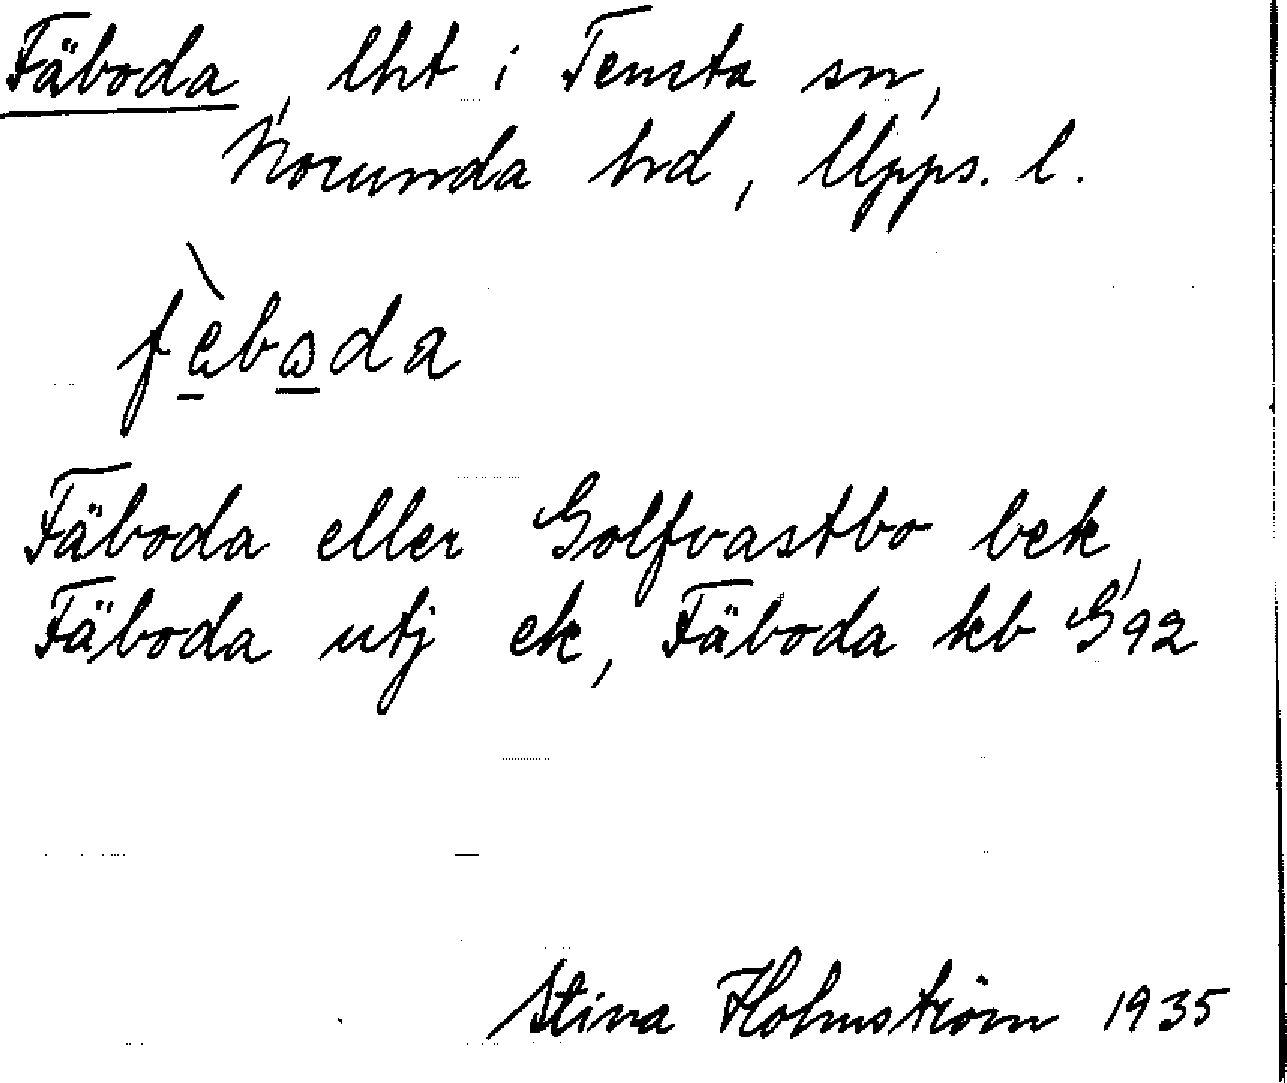 Fäboda, lht i Temsta sn,
Norunda hrd, Upps. l.
Fäboda eller Golfvastbo bek,
Fäboda utj ek, Fäboda kb G92
Stina Holmström 1935